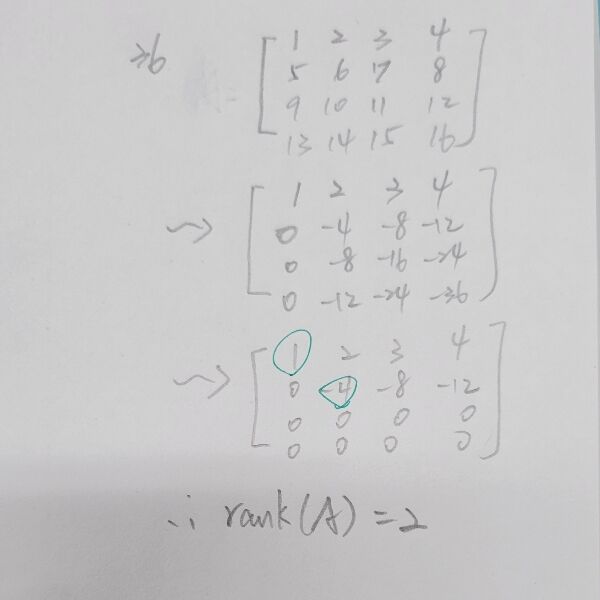 36 [ 1 2 3 4
5 6 17 8
9 10 11 12
13 14 15 16 ]
~> [ 1 2 3 4
0 -4 -8 -12
0 -8 -16 -24
0 -12 -24 -36 ]
~> [ 1 2 3 4
0 -4 -8 -12
0 0 0 0
0 0 0 0 ]
∴ rank(A) = 2